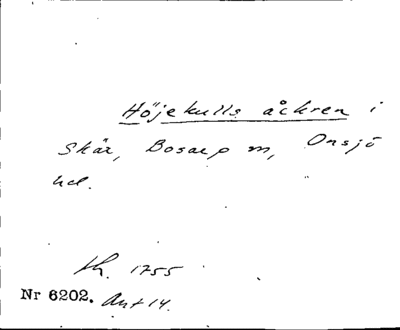 Höjekulls åckren i
Skär, Bosarp sn, Onsjö
hd.
lh. 1755
Nr 6202. Ant 14.